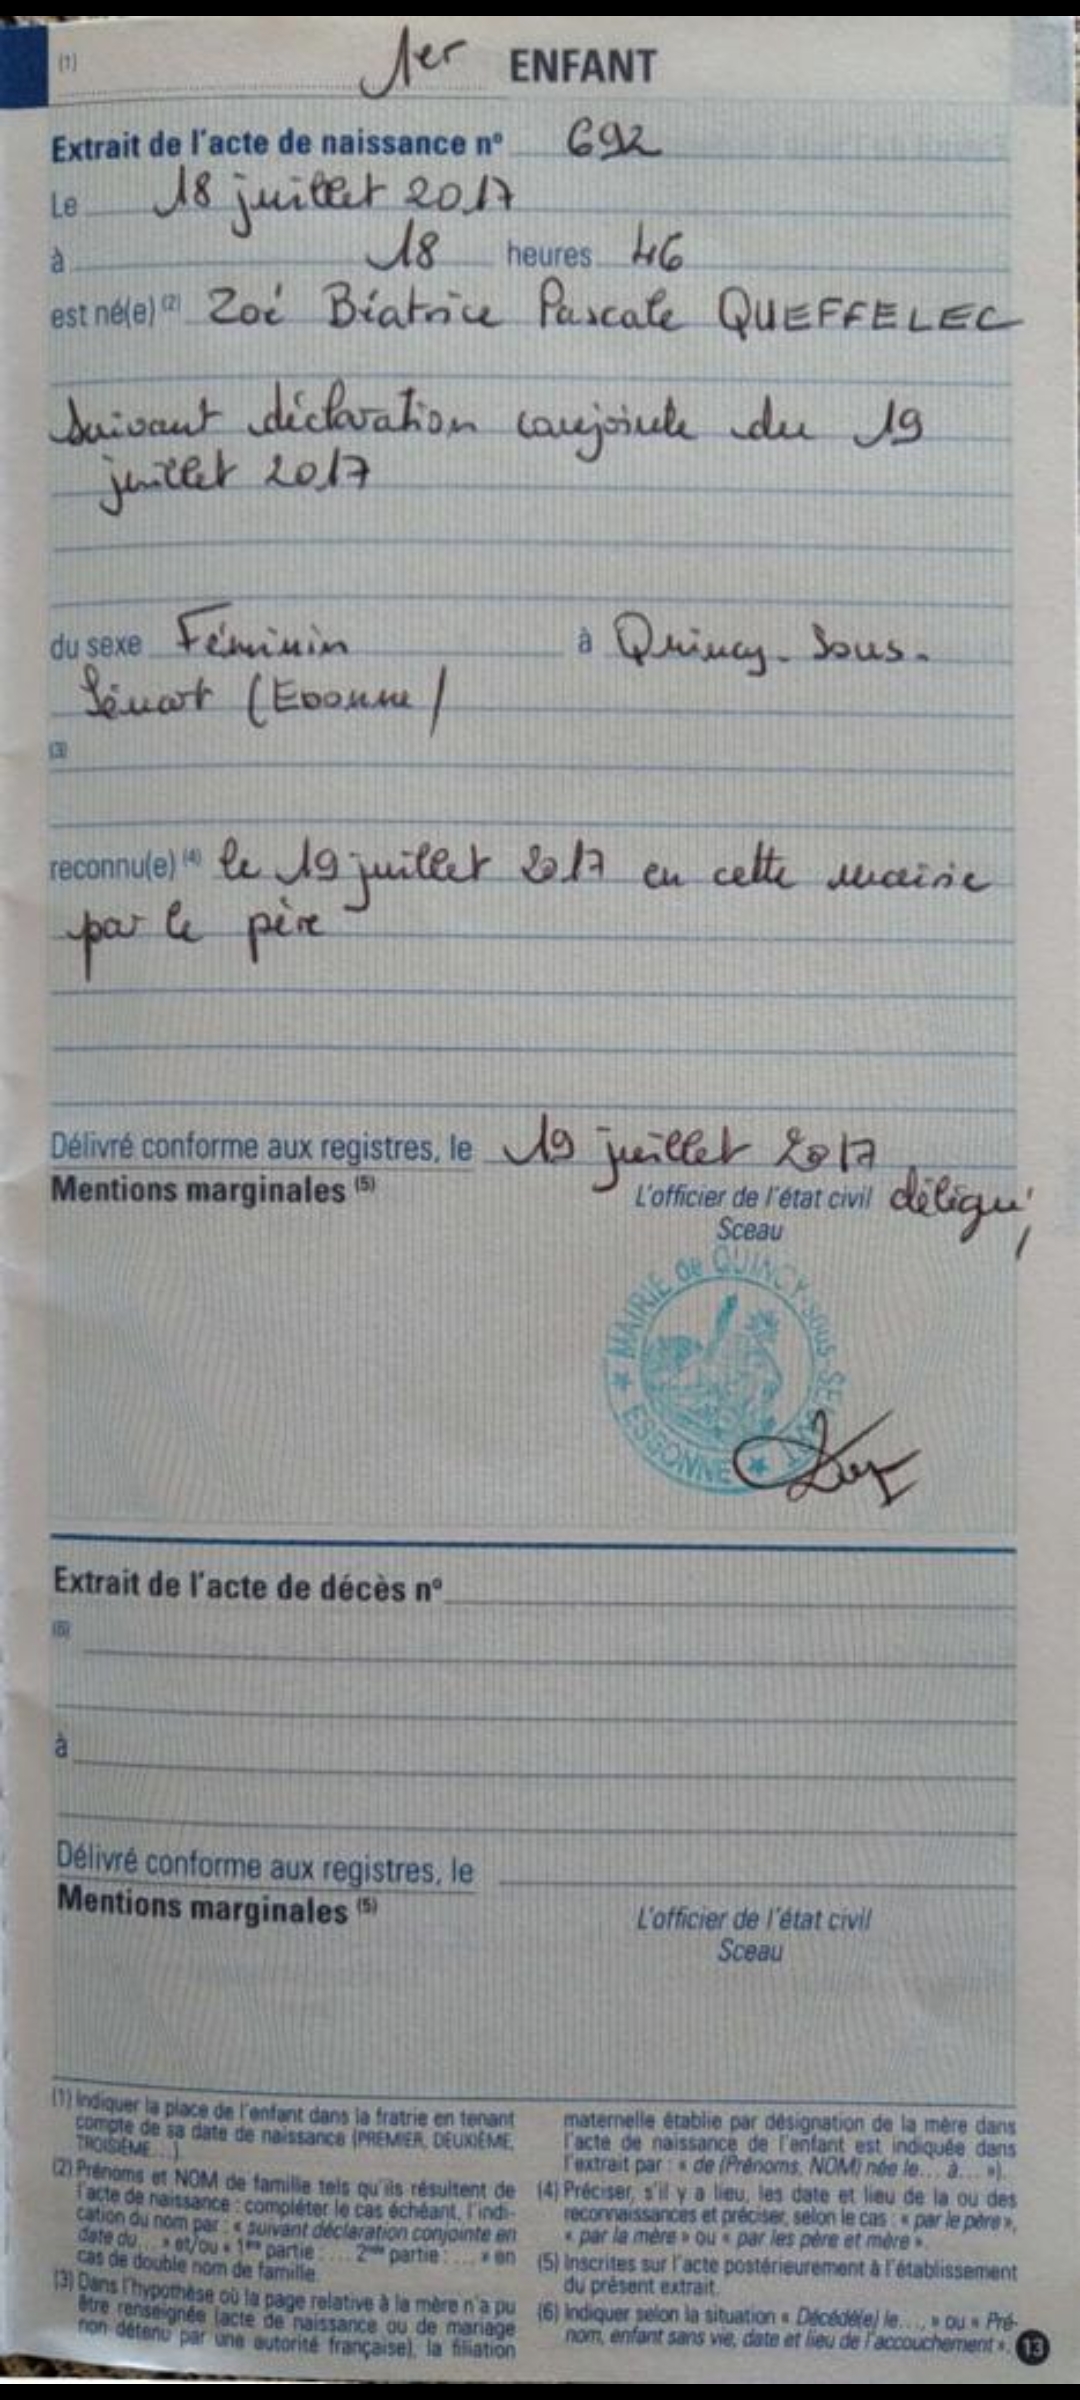 (1) 1er ENFANT
Extrait de l'acte de naissance n° 692
Le 18 juillet 2017
à 18 heures 46
est né(e) (2) Zoé Béatrice Pascale QUEFFELEC
Suivant déclaration conjointe du 19
juillet 2017
du sexe Féminin à Quincy-Sous-
Sénart (Essonne)
(3)
reconnu(e) (4) le 19 juillet 2017 en cette mairie
par le père
Délivré conforme aux registres, le 19 juillet 2017
Mentions marginales (5)
L'officier de l'état civil délégué,
Sceau
MAIRIE de QUINCY-sous-SÉNART
ESSONNE
Extrait de l'acte de décès n°
(6)
à
Délivré conforme aux registres, le
Mentions marginales (5)
L'officier de l'état civil
Sceau
(1) Indiquer la place de l'enfant dans la fratrie en tenant
compte de sa date de naissance (PREMIER, DEUXIÈME,
TROISIÈME...)
(2) Prénoms et NOM de famille tels qu'ils résultent de
l'acte de naissance : compléter le cas échéant, l'indi-
cation du nom par : « suivant déclaration conjointe en
date du... » et/ou « 1ère partie : .... 2nde partie : .... » en
cas de double nom de famille.
(3) Dans l'hypothèse où la page relative à la mère n'a pu
être renseignée (acte de naissance ou de mariage
non détenu par une autorité française), la filiation
maternelle établie par désignation de la mère dans
l'acte de naissance de l'enfant est indiquée dans
l'extrait par : « de (Prénoms, NOM) née le... à... »).
(4) Préciser, s'il y a lieu, les date et lieu de la ou des
reconnaissances et préciser, selon le cas : « par le père »,
« par la mère » ou « par les père et mère ».
(5) Inscrites sur l'acte postérieurement à l'établissement
du présent extrait.
(6) Indiquer selon la situation « Décédé(e) le..., » ou « Pré-
nom, enfant sans vie, date et lieu de l'accouchement ».
13